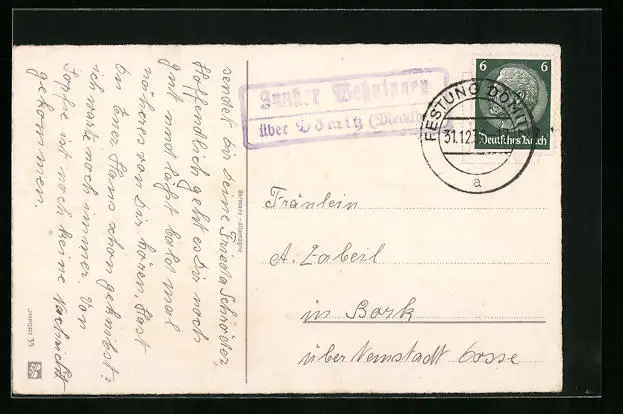 sendet dir deine Frieda Schröder,
Hoffendlich geht es Dir noch
gut und laßt bald mal
näheres von Dir hören. Hast
Du Hans schon geknibst?
ich warte noch immer. Von
Sophie ist noch keine Nachricht
gekommen.
Germany - Allemagne
IMPORT 35
Junker Wehningen
über Dömitz (Meckl)
FESTUNG DÖMITZ
31.12.
a
6 6
Deutsches Reich
Fräulein
A. Zabeil
in Bork
über Neustadt Dosse